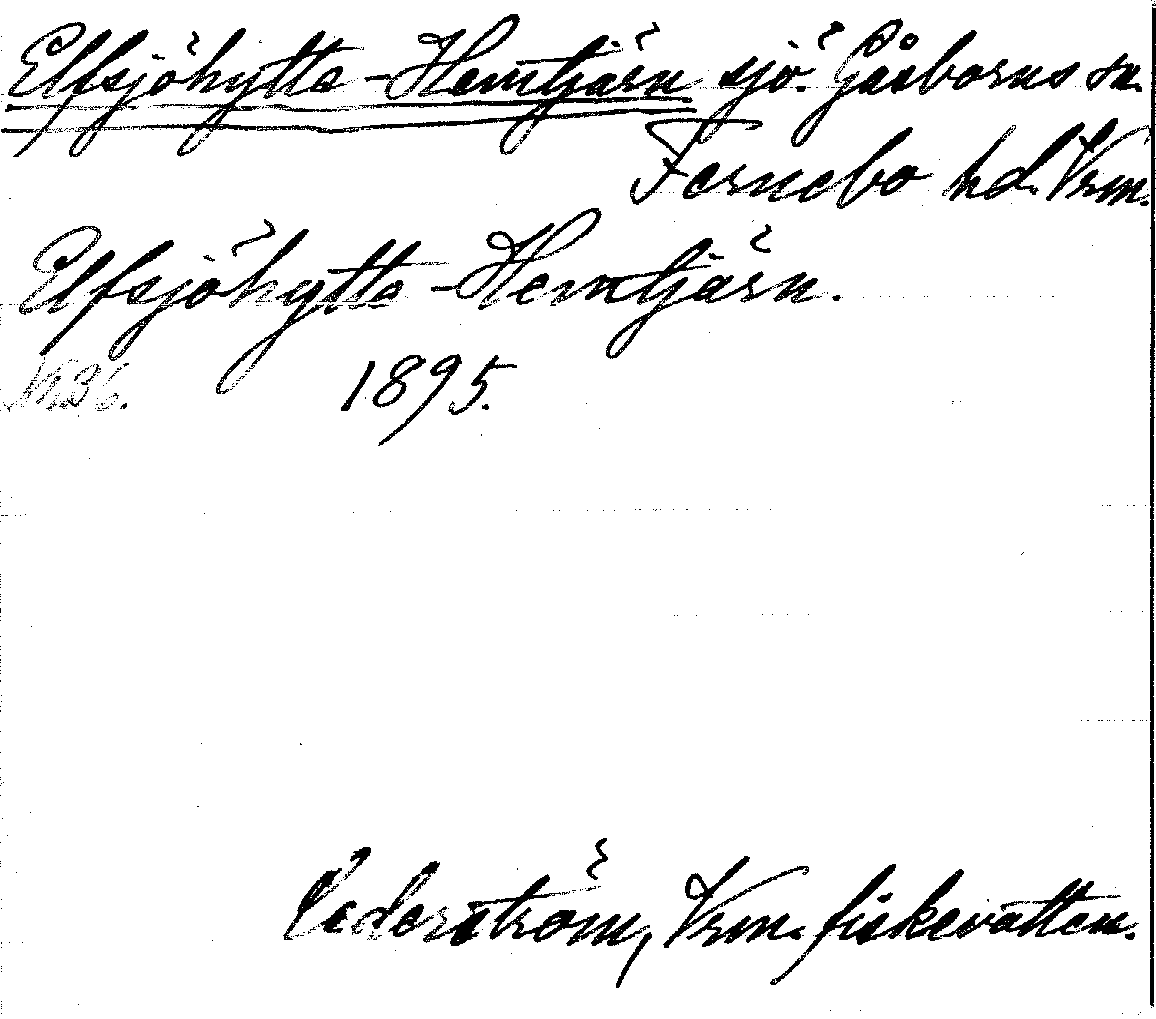 Elfsjöhytte-Hemtjärn sjö. Gåsborns sn.
Fernebo hd. Vrm.
Elfsjöhytte-Hemtjärn.
N:o 36. 1895.
Cederström, Vrm. fiskevatten.